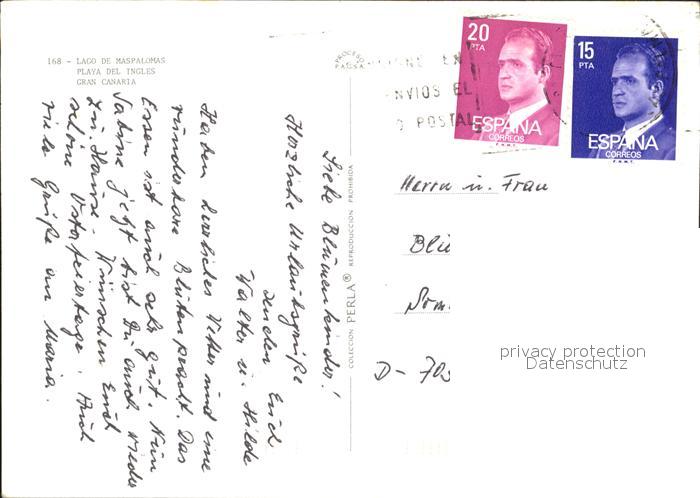 168 - LAGO DE MASPALOMAS
PLAYA DEL INGLES
GRAN CANARIA
Liebe Blumenkinder!
Herzliche Urlaubsgrüße
senden Euch
Walter u. Hilde
Haben herrliches Wetter und eine
wunderbare Blütenpracht. Das
Essen ist auch sehr gut. Nun
Sabine jetzt bist Du auch wieder
zu Hause. Wünschen Euch
schöne Osterfeiertage. Auch
viele Grüße an Maria.
COLECCION PERLA® REPRODUCCION PROHIBIDA
EN
ENVIOS EL
O POSTAL
20
PTA
ESPAÑA
CORREOS
F.N.M.T.
15
PTA
ESPAÑA
CORREOS
F.N.M.T.
Herrn u. Frau
Blü
Som
D- 703
privacy protection
Datenschutz